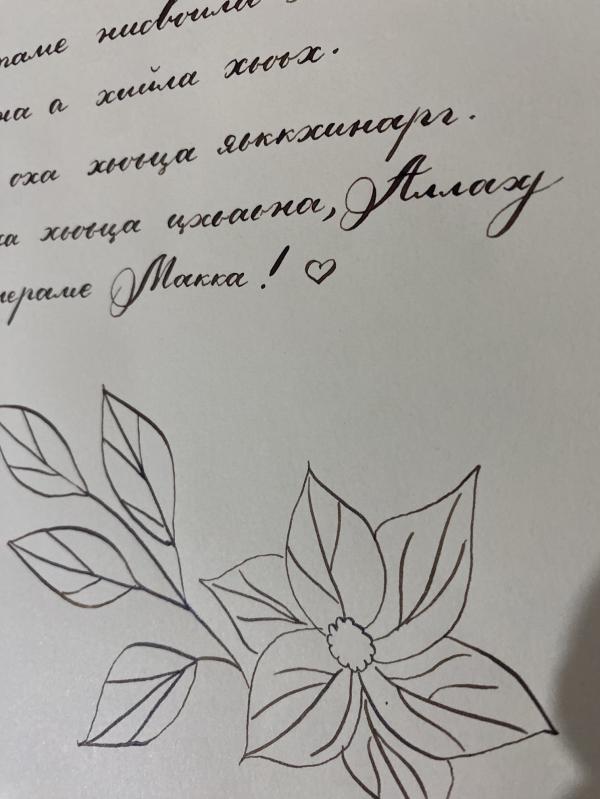 нисвойла
на а хийла хьоьх.
оха хьоьца яьккхинарг.
ха хьоьца цхьаьна, Аллаху
мераме Макка! ♡